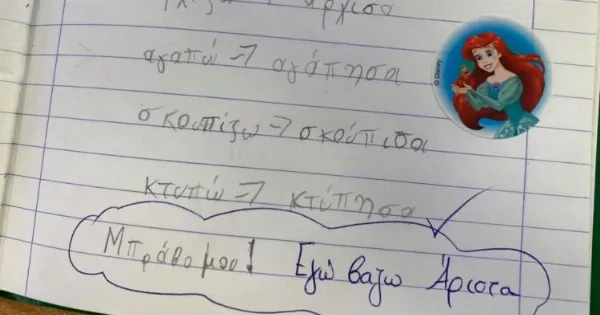 αγαπώ => αγάπησα
© Disney
σκουπίζω => σκούπισα
κτυπώ => κτύπησα
Μπράβο μου! Εγώ βάζω Άριστα